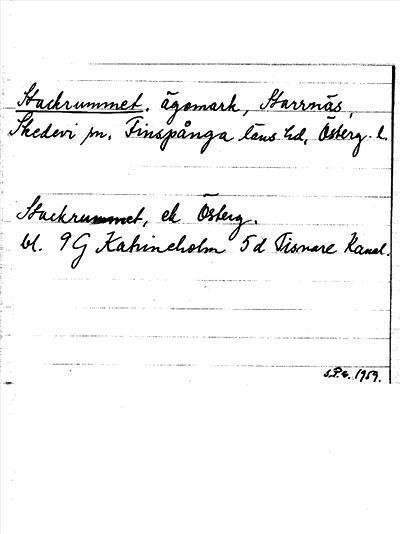 Stackrummet. ägomark, Starrnäs,
Skedevi sn. Finspånga läns hd, Österg. l.
Stackrummet, ek Österg.
bl. 9G Katrineholm 5d Tisnare Kanal.
1959.